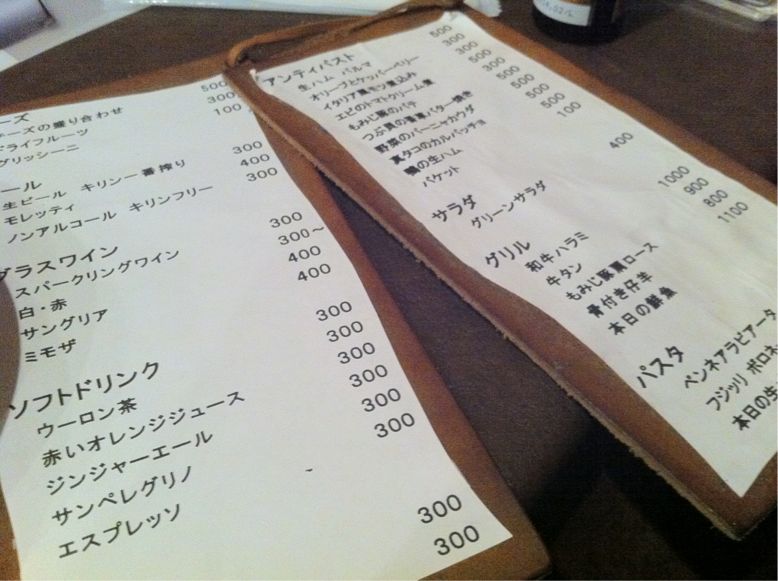 ーズ
チーズの盛り合わせ 500
ドライフルーツ 300
グリッシーニ 100
ール
生ビール キリン一番搾り 300
モレッティ 400
ノンアルコール キリンフリー 300
グラスワイン
スパークリングワイン 300
白・赤 300～
サングリア 400
ミモザ 400
ソフトドリンク
ウーロン茶 300
赤いオレンジジュース 300
ジンジャーエール 300
サンペレグリノ 300
エスプレッソ 300
300
300
300
アンティパスト
生ハム パルマ 500
オリーブとケッパーベリー 300
イタリア風モツ煮込み 300
エビのトマトクリーム煮 500
もみじ豚のパテ 300
つぶ貝の香草バター焼き 500
野菜のバーニャカウダ 500
真タコのカルパッチョ 500
鴨の生ハム 500
バケット 100
サラダ
グリーンサラダ 400
グリル
和牛ハラミ 1000
牛タン 900
もみじ豚肩ロース 800
骨付き仔羊 1100
本日の鮮魚
パスタ
ペンネアラビアータ
フジッリ ボロネ
本日の生